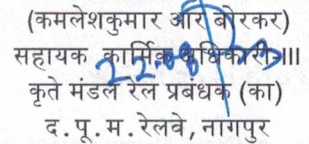 (कमलेशकुमार आर बोरकर)
सहायक कार्मिक अधिकारी-III
22.08
कृते मंडल रेल प्रबंधक (का)
द.पू.म.रेलवे,नागपुर